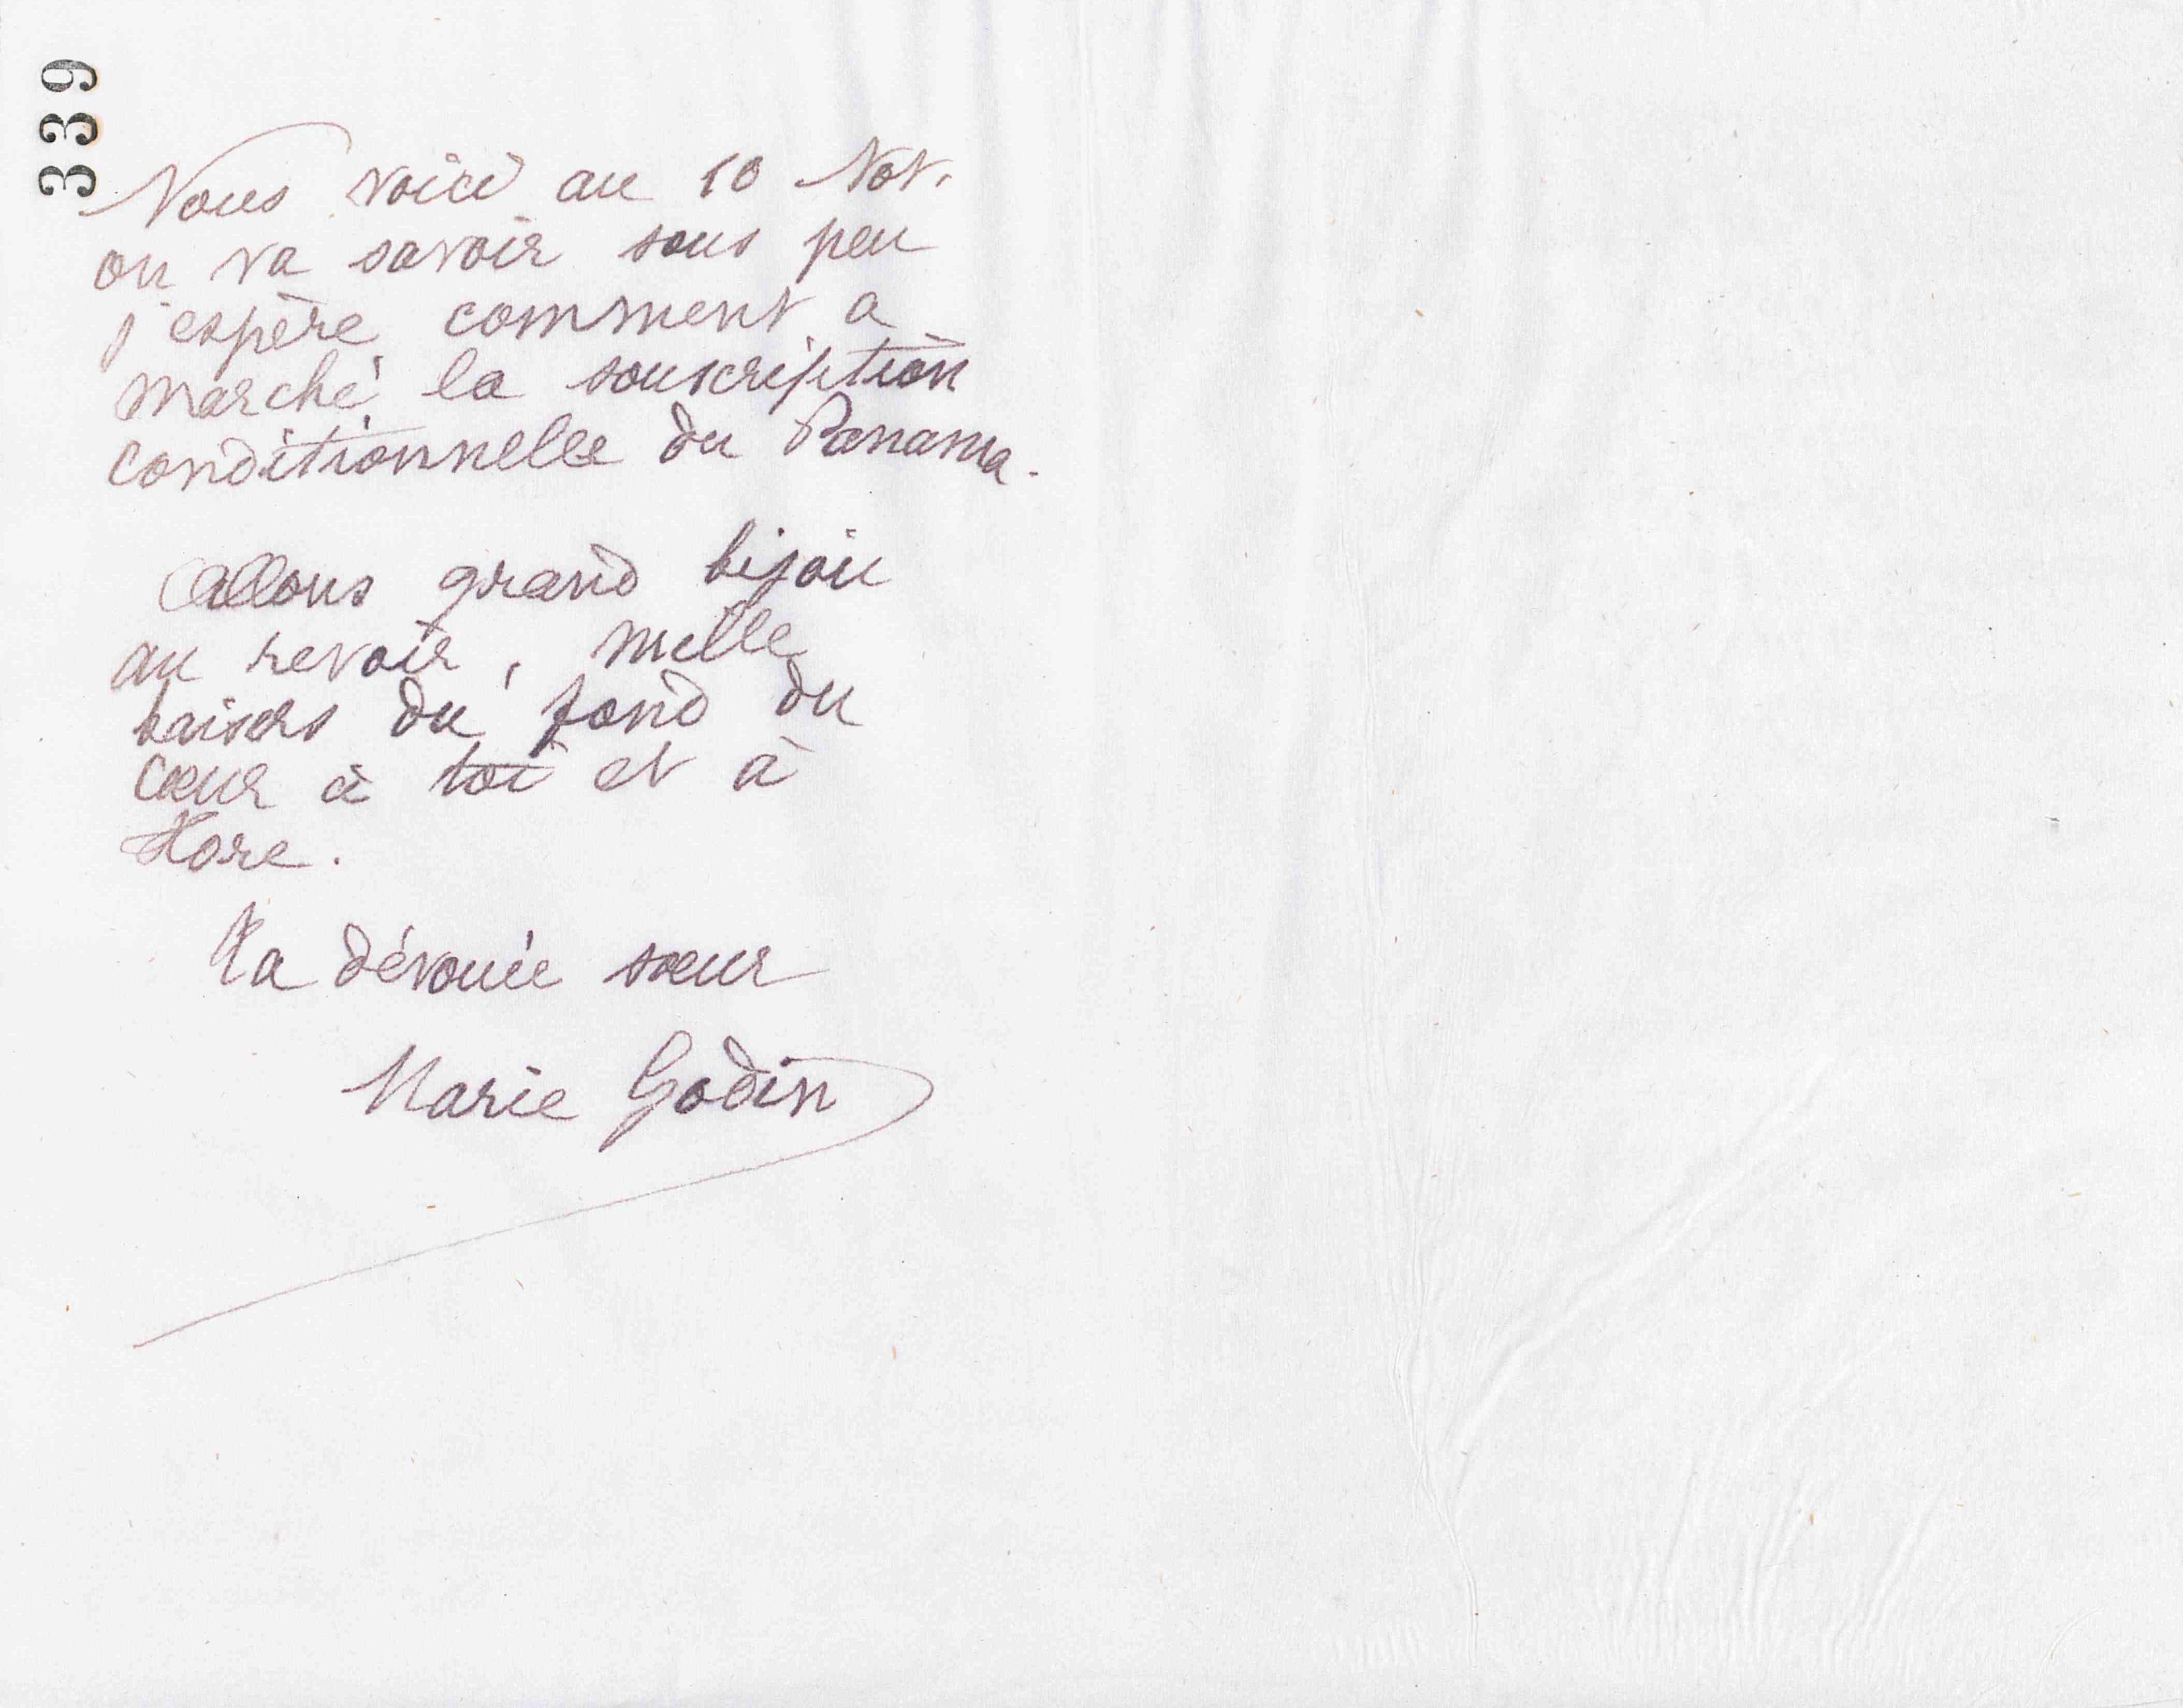 339
Nous voici au 10 Nov.
on va savoir sous peu
j'espère comment a
marché la souscription
conditionnelle du Panama.
Allons grand bijou
au revoir, mille
baisers du fond du
cœur à toi et à
Flore.
Ta dévouée sœur
Marie Godin